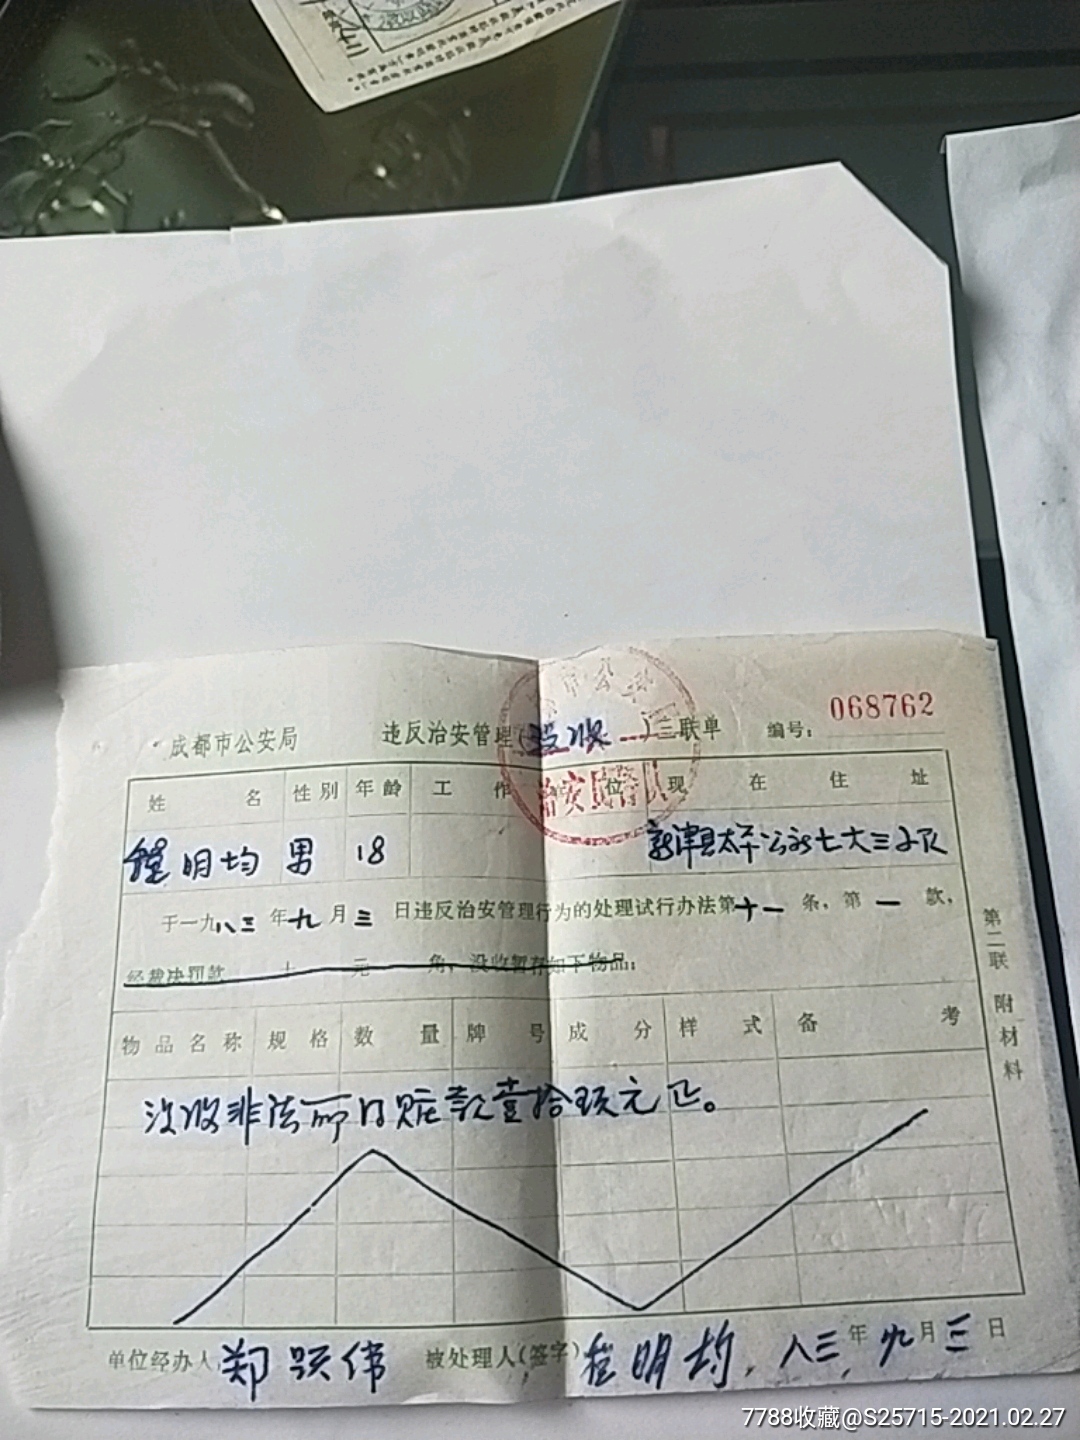 068762
成都市公安局 违反治安管理(没收 )三联单 编号:
治安 队
姓名 性别 年龄 工作 位 现在住址
明均 男 18 新津县太平公社七大三队
于一九八三年九月三日违反治安管理行为的处理试行办法第十一条,第一款,
经裁决罚款 十 元 角,没收暂存如下物品:
第二联 附材料
物品名称 规格 数量 牌号 成分 样式 备考
没收非法所得赃款壹拾 元正。
单位经办人 郑跃伟 被处理人(签字) 明均 八三年九月三日
7788收藏@S25715-2021.02.27